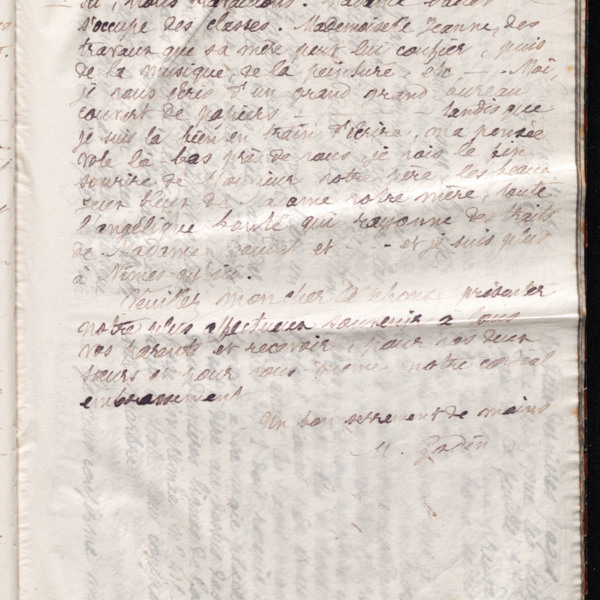 s'occupe des classes. Mademoiselle Jeanne, des
travaux que sa mère peut lui confier, puis
de la musique, de la peinture, etc — . Moi,
je vous écris d'un grand grand bureau
couvert de papiers — — tandis que
je suis là bien en train d'écrire, ma pensée
vole là-bas près de vous, je vois le fin
sourire de Monsieur votre père, les beaux
yeux bleux de Madame votre mère, toute
l'angélique bonté qui rayonne des traits
de Madame et - - et je suis plus
à Nîmes qu'ici.
Veuillez, mon cher présenter
notre plus affectueux souvenir à tous
vos parents et recevoir, pour vos deux
sœurs et pour vous-même notre cordial
embrassement
Un bon serrement de mains
M. Godin